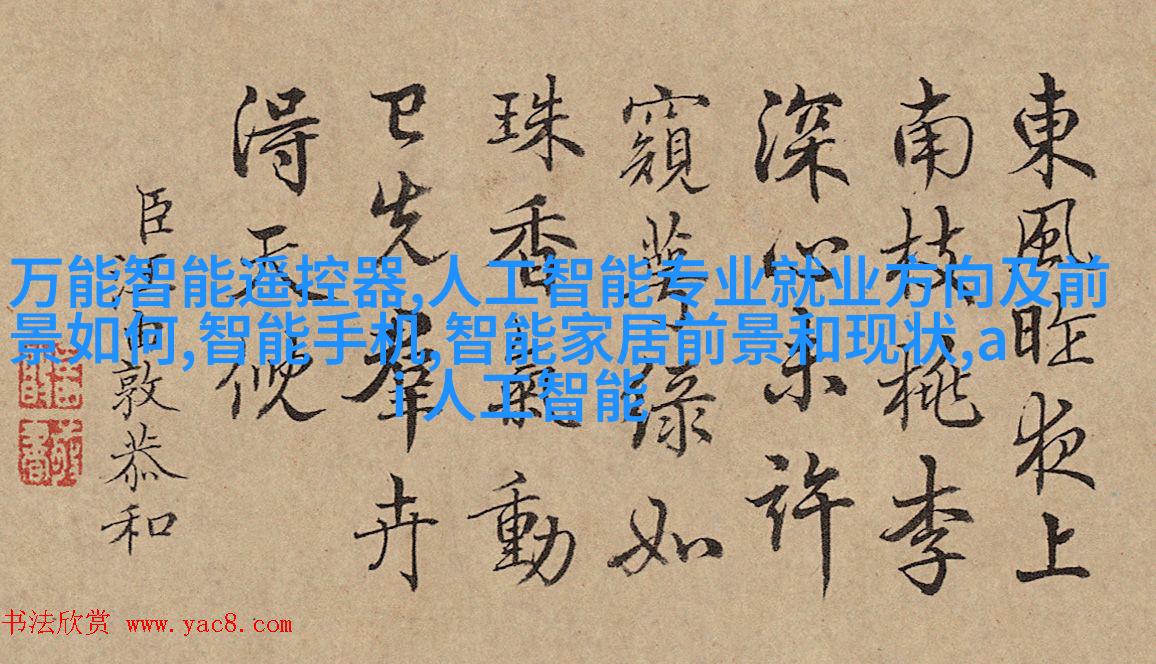 東風昨夜上
南枝桃李
深心未許
窺萼綠如
珠香動
已先羣卉
淂天倪
臣汪由敦恭和
万能智能遥控器,人工智能专业就业方向及前
景如何,智能手机,智能家居前景和现状,a
i人工智能
书法欣赏 www.yac8.com